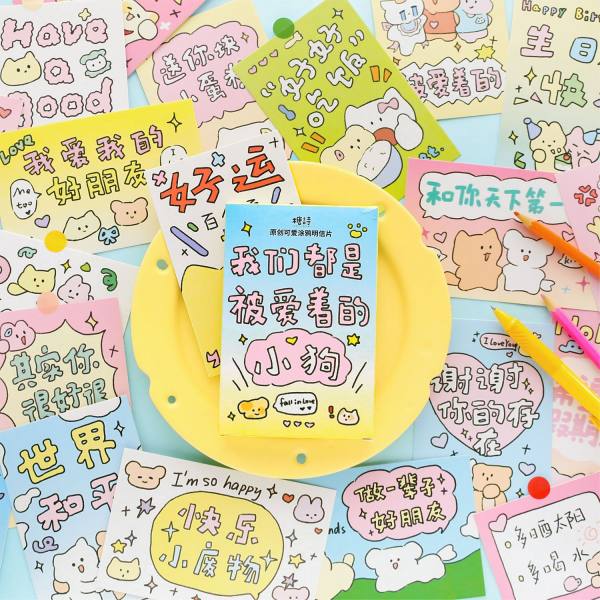 Have
a
good
送你块
小蛋糕
好好
吃饭
被爱着的
Happy Birt
生日
快
Love
我爱我的
好朋友
Me
too
好运
百
和你天下第一
糖詩
原创可爱涂鸦明信片
我们都是
被爱着的
小狗
fall in love
其实你
很好很
I love You
谢谢
你的存
在
世界
和平
I'm so happy
快乐
小废物
做一辈子
好朋友
nds
多晒太阳
多喝水